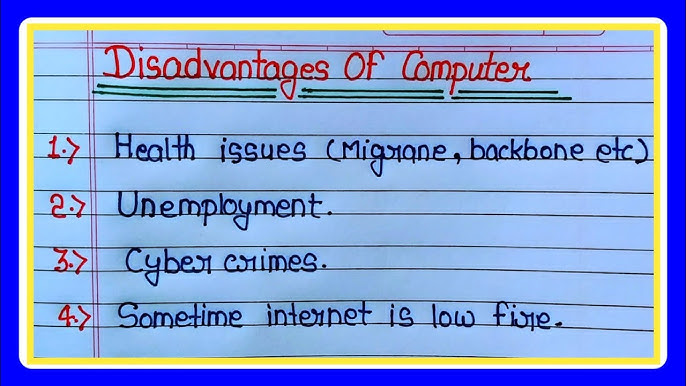 Disadvantages Of Computer
1.> Health issues (Migrane, backbone etc)
2.> Unemployment.
3.> Cyber crimes.
4.> Sometime internet is low fire.